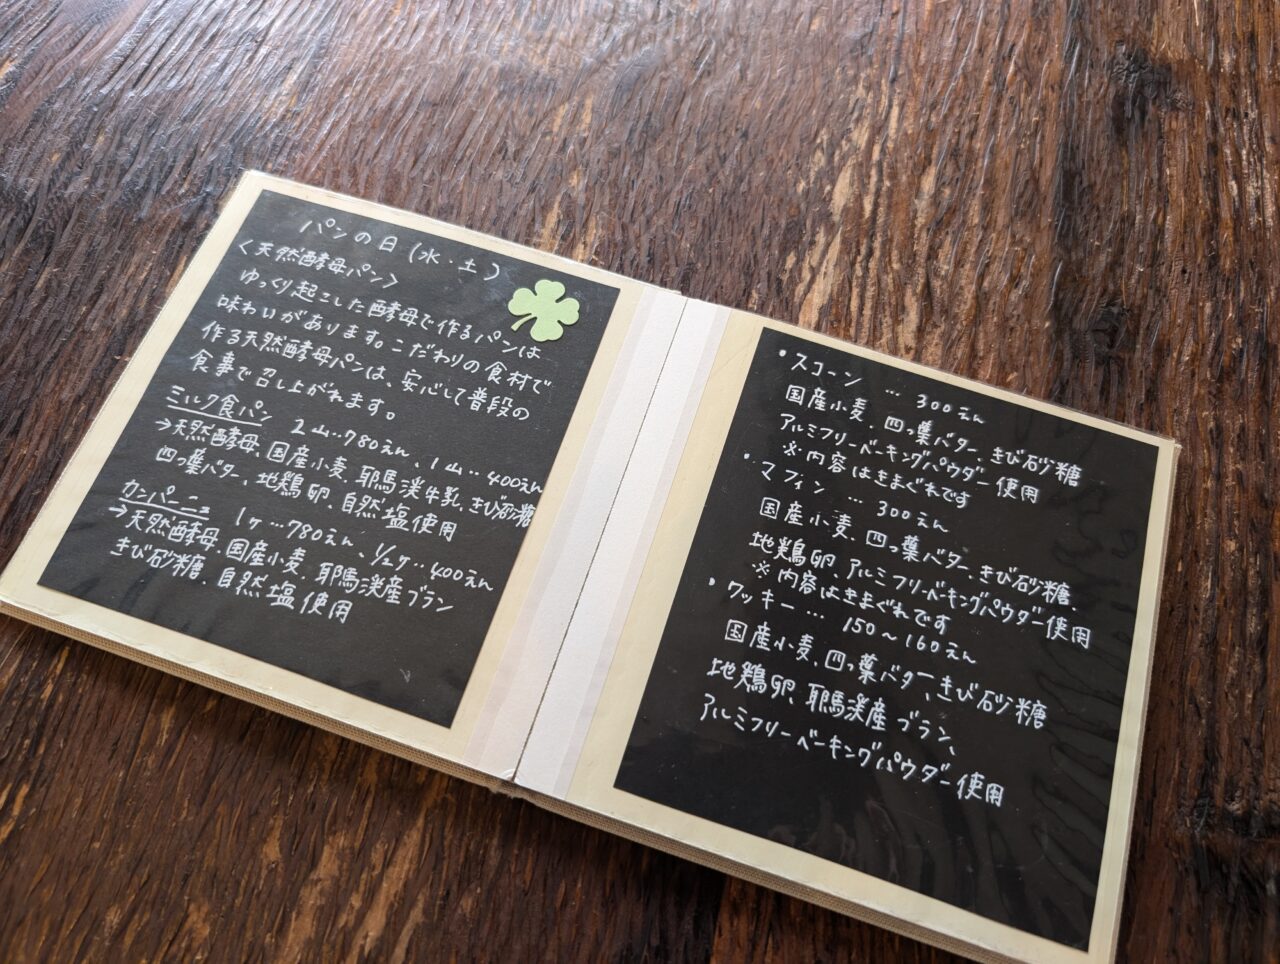 パンの日(水・土)
〈天然酵母パン〉
ゆっくり起こした酵母で作るパンは
味わいがあります。こだわりの食材で
作る天然酵母パンは、安心して普段の
食事で召し上がれます。
ミルク食パン 2山…780えん、1山…400えん
→天然酵母、国産小麦、耶馬渓牛乳、きび砂糖
四つ葉バター、地鶏卵、自然塩使用
カンパーニュ 1ヶ…780えん、1/2ヶ…400えん
→天然酵母、国産小麦、耶馬渓産ブラン
きび砂糖、自然塩使用
・スコーン … 300えん
国産小麦、四つ葉バター、きび砂糖
アルミフリーベーキングパウダー使用
※内容はきまぐれです
・マフィン … 300えん
国産小麦、四つ葉バター、きび砂糖、
地鶏卵、アルミフリーベーキングパウダー使用
※内容はきまぐれです
・クッキー … 150〜160えん
国産小麦、四つ葉バター、きび砂糖
地鶏卵、耶馬渓産ブラン、
アルミフリーベーキングパウダー使用